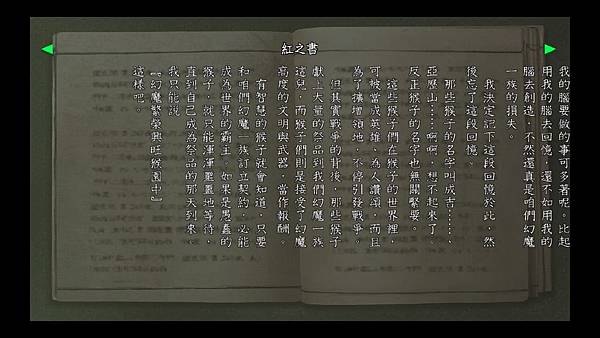 紅之書
我的腦要做的事可多著呢。比起
用我的腦去回憶，還不如用我的
腦去創造，不然還真是咱們幻魔
一族的損失。
我決定記下這段回憶於此，然
後忘了這段回憶。
那些猴子的名字叫成吉……，
亞歷山……啊啊，想不起來了，
反正猴子的名字也無關緊要。
這些猴子們在猴子的世界裡，
可被當成英雄，為人讚頌，而且
為了擴增領地，不停引發戰爭。
但其實戰爭的背後，那些猴子
獻上大量的祭品到我們幻魔一族
這兒，而猴子們則是接受了幻魔
高度的文明與武器，當作報酬。
有智慧的猴子就會知道，只要
和咱們幻魔一族訂立契約，必能
成為世界的霸主。如果是愚蠢的
猴子，就只能渾渾噩噩地等待，
直到自己成為祭品的那天到來。
我只能說
『幻魔繁榮興旺猴園中』
這樣吧。